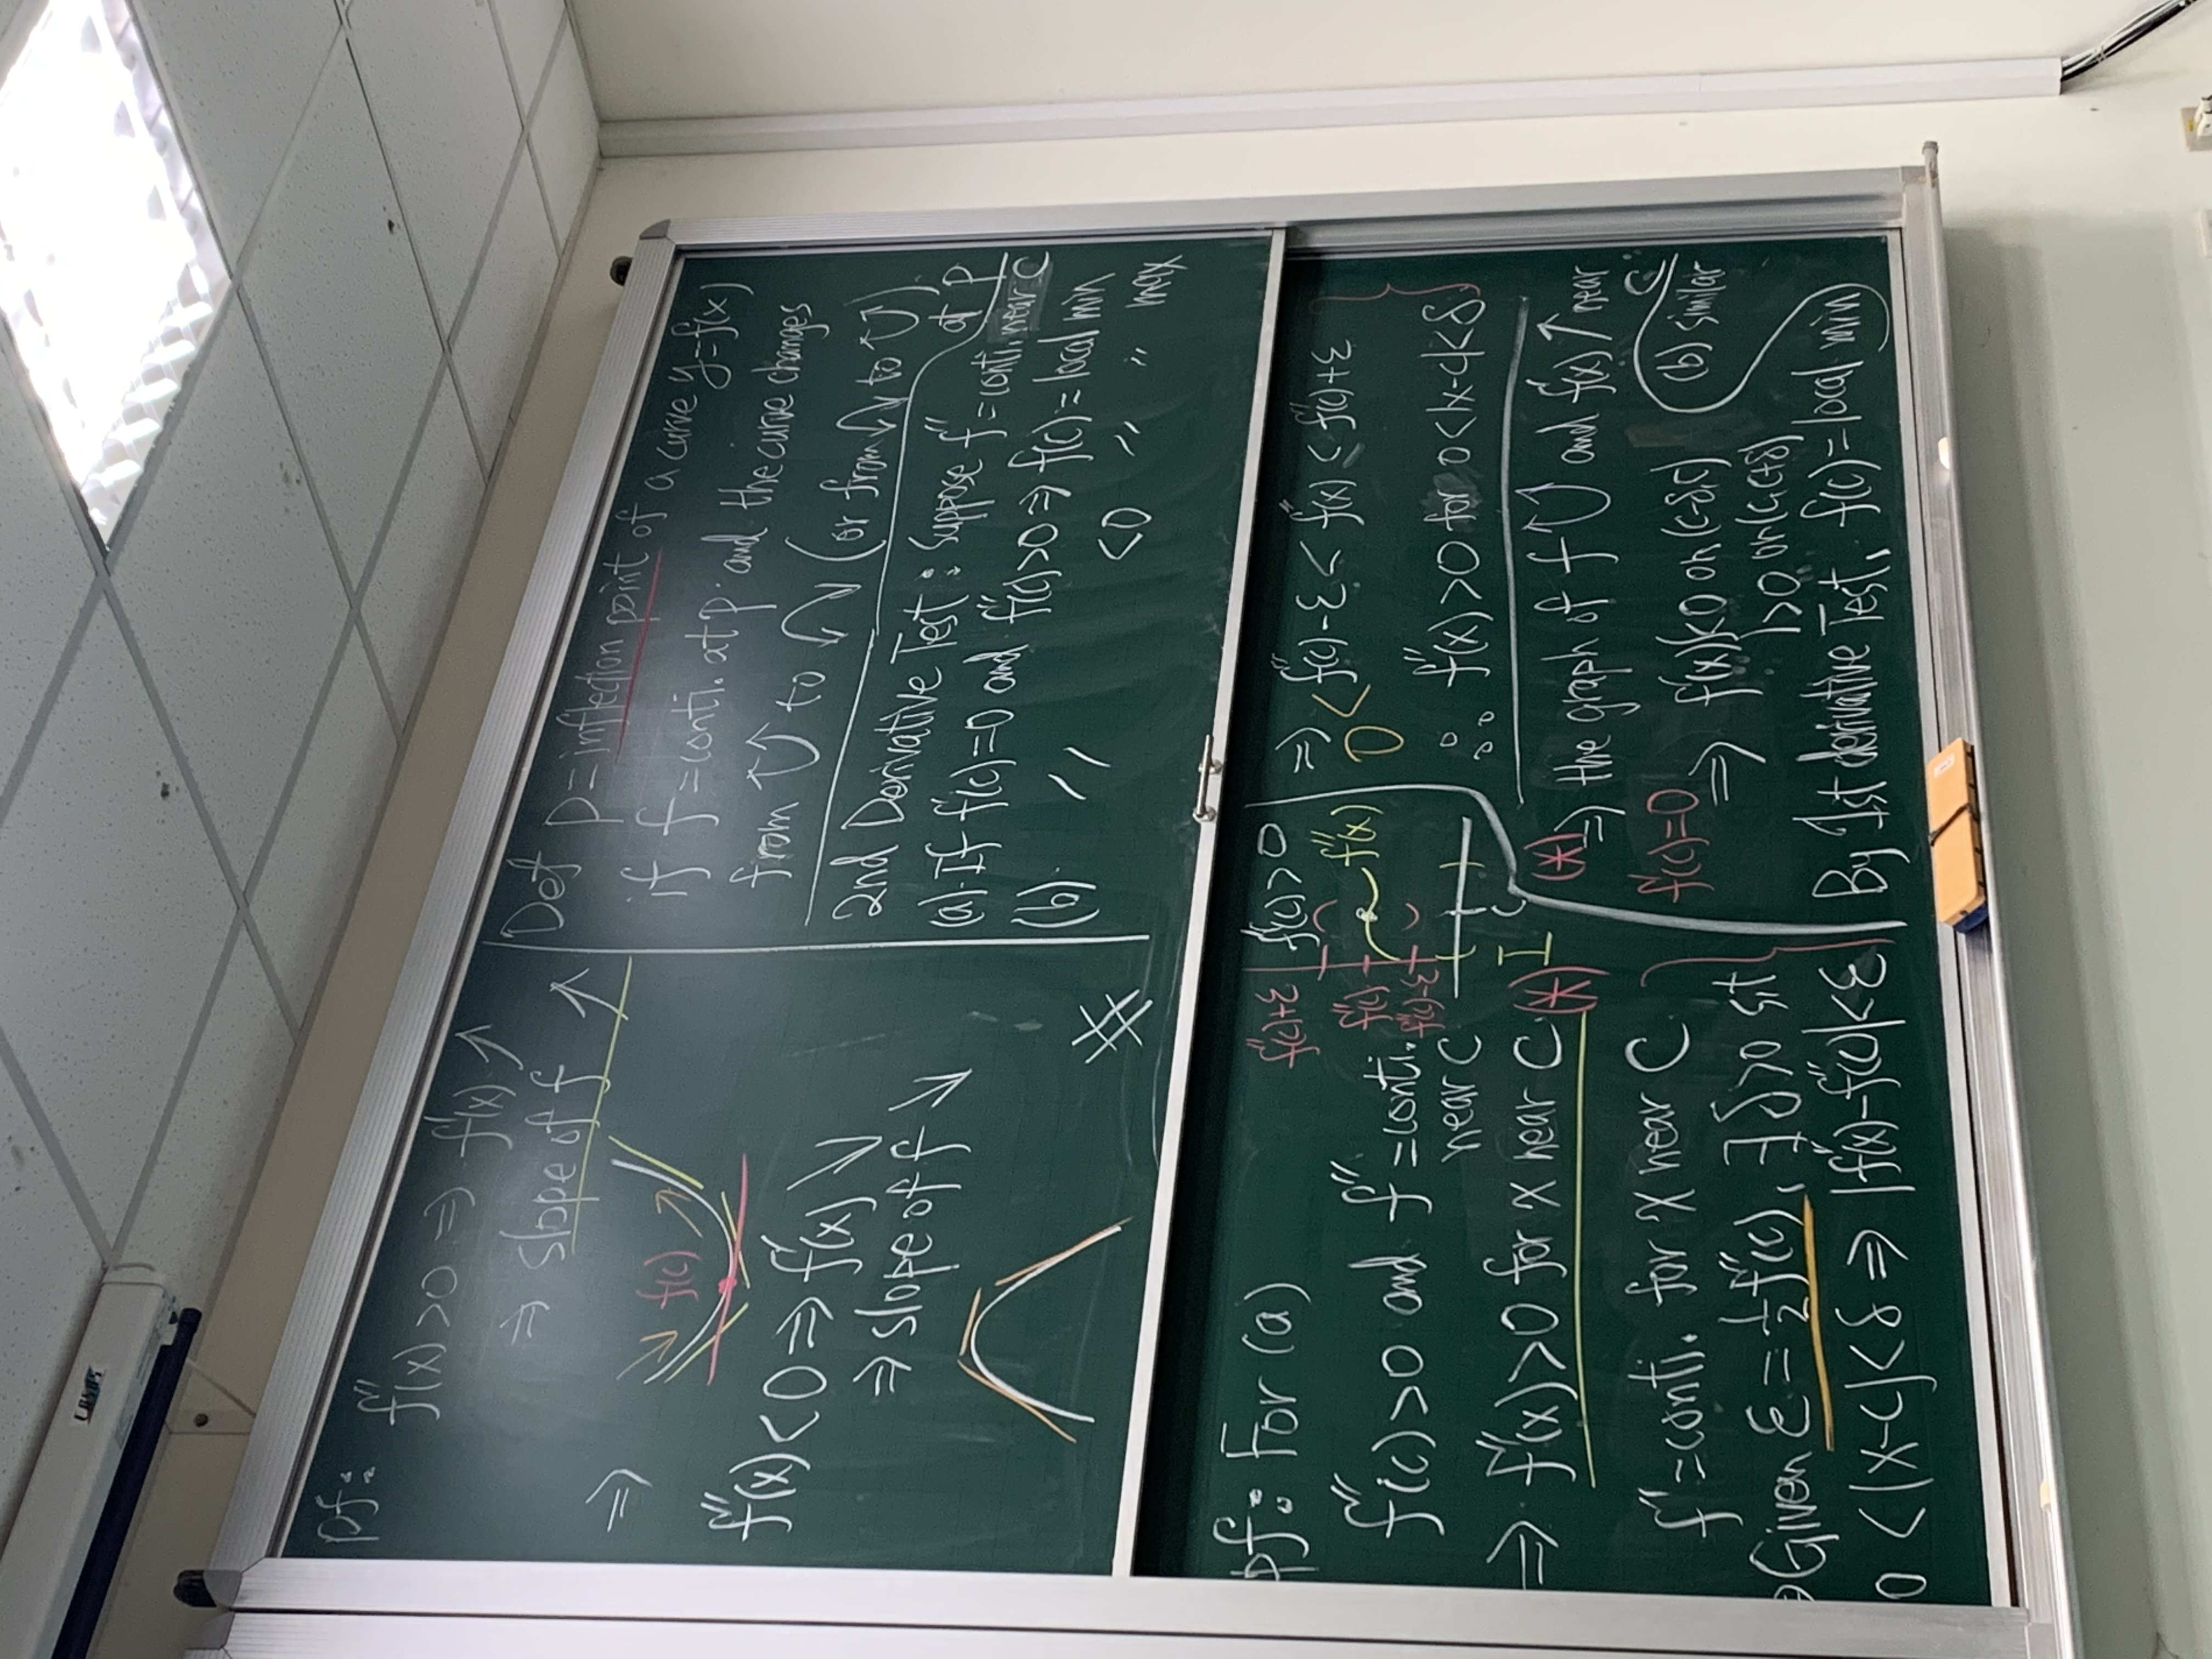 pf:
f''(x) > 0 ⇒ f'(x) ↗
⇒ slope of f ↗
⇒
f(c)
f''(x) < 0 ⇒ f'(x) ↘
⇒ slope of f ↘
#
Def P = inflection point of a curve y = f(x)
if f = conti. at P and the curve changes
from ∪ to ∩ (or from ∩ to ∪).
at P
2nd Derivative Test : Suppose f'' = conti. near C
(a) If f'(c) = 0 and f''(c) > 0 ⇒ f(c) = local min
(b) 〃 < 0 〃 〃 max
pf: For (a)
f''(c) > 0 and f'' = conti.
near C
⇒ f''(x) > 0 for x near C (*)
f'' = conti. for x near C
⇒ Given ε = 1/2 f''(c), ∃ δ > 0 s.t
0 < |x-c| < δ ⇒ |f''(x) - f''(c)| < ε
f''(c) > 0
f''(c)+ε
f''(c)
f''(x)
f''(c)-ε
C
I
⇒ f''(c) - ε < f''(x) < f''(c) + ε
0 <
∴ f''(x) > 0 for 0 < |x-c| < δ
(*) ⇒ the graph of f ∪ and f'(x) ↑ near
C
f'(c) = 0
⇒ f'(x) < 0 on (c-δ, c)
> 0 on (c, c+δ)
(b) similar
By 1st derivative Test, f(c) = local min